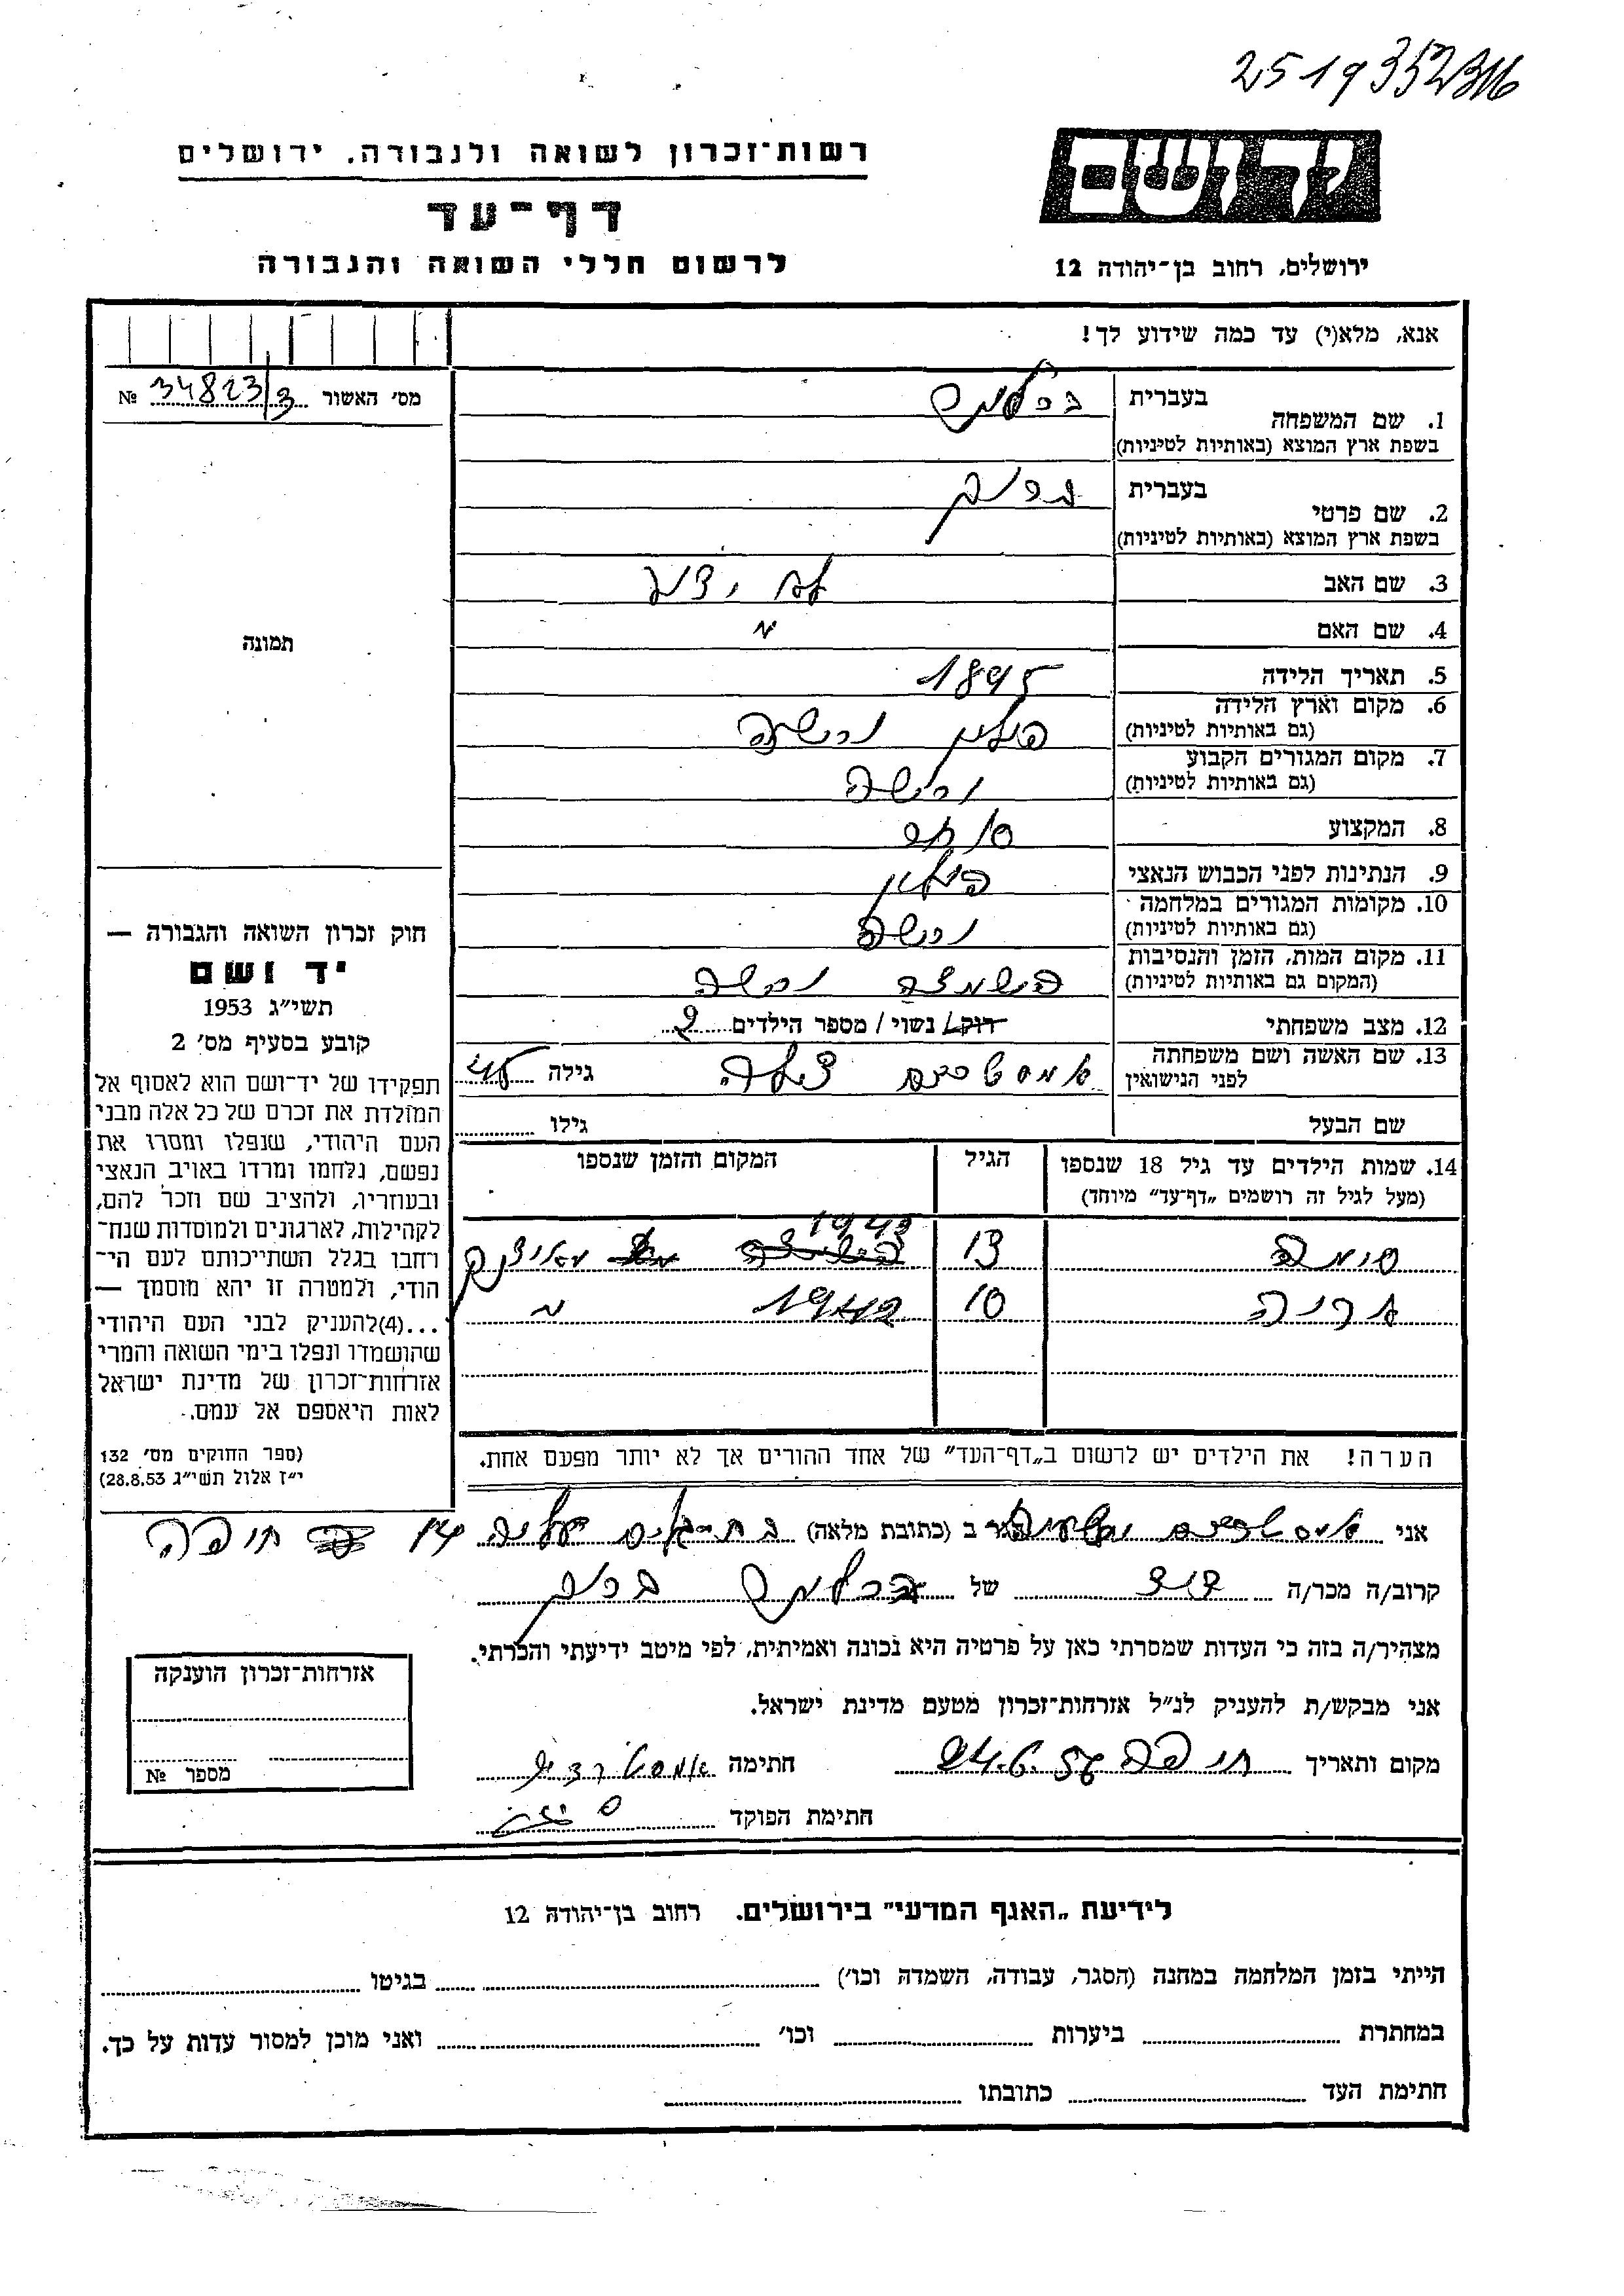 רשות־זכרון לשואה ולגבורה, ירושלים
דף־עד
לרשום חללי השואה והגבורה
ירושלים, רחוב בן־יהודה 12
אנא, מלא(י) עד כמה שידוע לך!
מס' האשור 34823/3 №
1. שם המשפחה
בעברית
בשפת ארץ המוצא (באותיות לטיניות)
2. שם פרטי
בעברית
בשפת ארץ המוצא (באותיות לטיניות)
3. שם האב לא ידוע
4. שם האם "
5. תאריך הלידה 1895
6. מקום וארץ הלידה פולין ורשה
(גם באותיות לטיניות)
7. מקום המגורים הקבוע ורשה
(גם באותיות לטיניות)
8. המקצוע סוחר
9. הנתינות לפני הכבוש הנאצי
10. מקומות המגורים במלחמה ורשה
(גם באותיות לטיניות)
11. מקום המות, הזמן והנסיבות השמדה ורשה
(המקום גם באותיות לטיניות)
12. מצב משפחתי רוק/ נשוי / מספר הילדים 2
13. שם האשה ושם משפחתה אמסטרדם גילה
לפני הנישואין
שם הבעל גילו
14. שמות הילדים עד גיל 18 שנספו הגיל המקום והזמן שנספו
(מעל לגיל זה רושמים „דף־עד" מיוחד)
13 1943
10 "
הערה! את הילדים יש לרשום ב„דף־העד" של אחד ההורים אך לא יותר מפעם אחת.
תמונה
חוק זכרון השואה והגבורה —
יד ושם
תשי"ג 1953
קובע בסעיף מס' 2
תפקידו של יד־ושם הוא לאסוף אל
המולדת את זכרם של כל אלה מבני
העם היהודי, שנפלו ומסרו את
נפשם, נלחמו ומרדו באויב הנאצי
ובעוזריו, ולהציב שם וזכר להם,
לקהילות, לארגונים ולמוסדות שנח־
רחבו בגלל השתייכותם לעם הי־
הודי, ולמטרה זו יהא מוסמך —
...(4)להעניק לבני העם היהודי
שהושמדו ונפלו בימי השואה והמרי
אזרחות־זכרון של מדינת ישראל
לאות היאספם אל עמם.
(ספר החוקים מס' 132
י"ז אלול תשי"ג 28.8.53)
אני אמסטרדם הגר ב (כתובת מלאה) בת־גלים חיפה
קרוב/ה מכר/ה דוד של
מצהיר/ה בזה כי העדות שמסרתי כאן על פרטיה היא נכונה ואמיתית, לפי מיטב ידיעתי והכרתי.
אני מבקש/ת להעניק לנ"ל אזרחות־זכרון מטעם מדינת ישראל.
מקום ותאריך חיפה חתימה
חתימת הפוקד
אזרחות־זכרון הוענקה
מספר №
לידיעת „האגף המדעי" בירושלים. רחוב בן־יהודה 12
הייתי בזמן המלחמה במחנה (הסגר, עבודה, השמדה וכו') בגיטו
במחתרת ביערות וכו' ואני מוכן למסור עדות על כך.
חתימת העד כתובתו